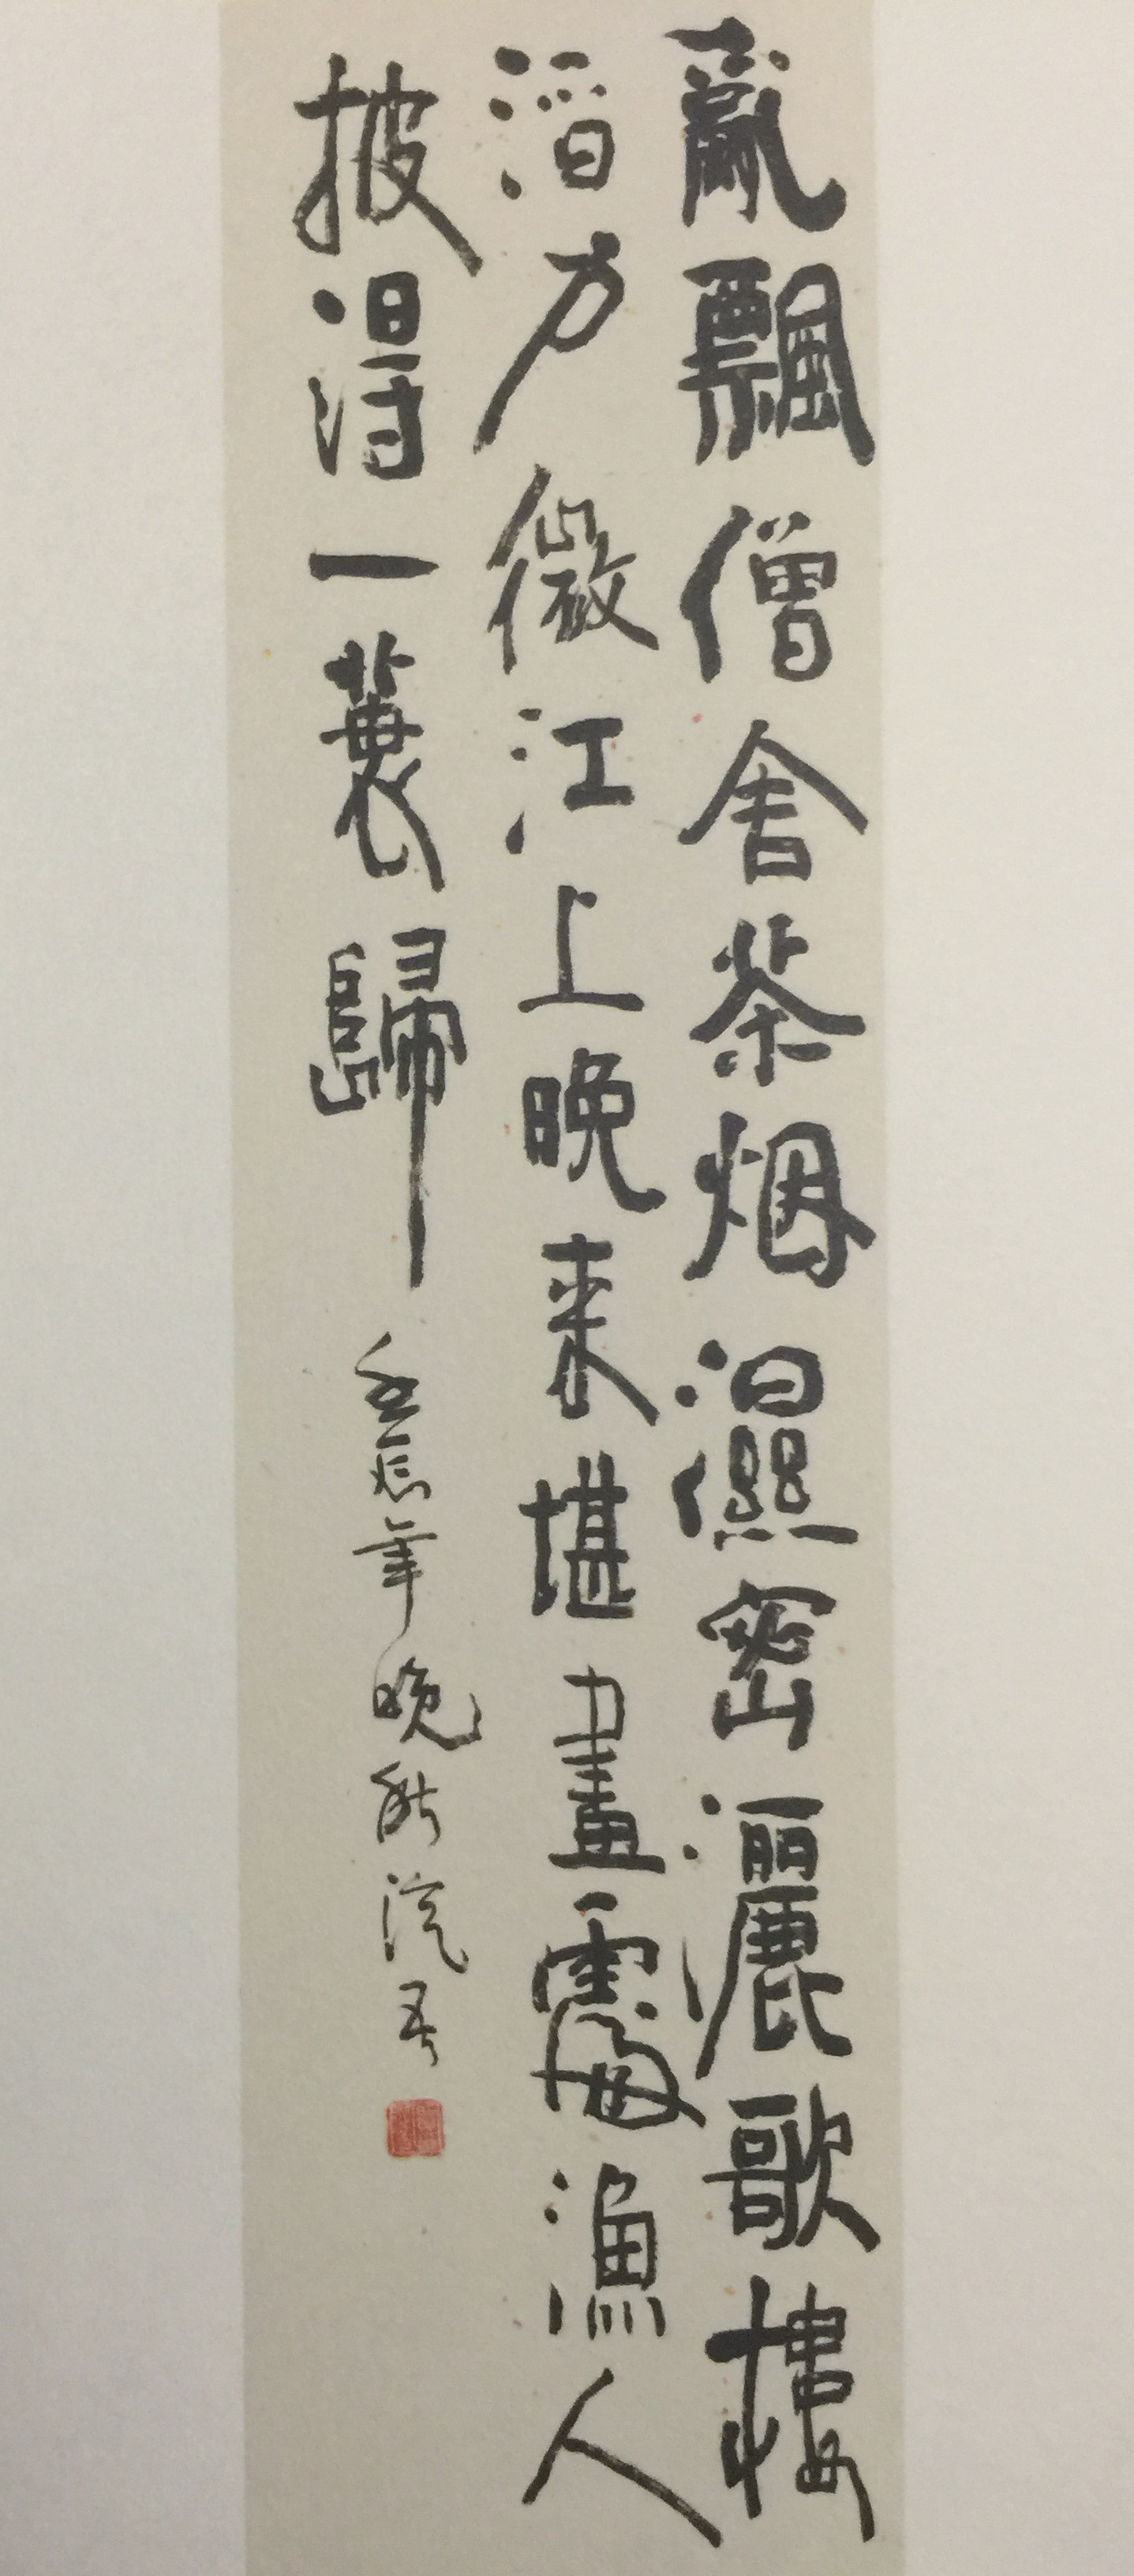 亂飄僧舍茶烟濕密灑歌樓
酒力微江上晚來堪畫處漁人
披得一蓑歸 壬辰年晚秋